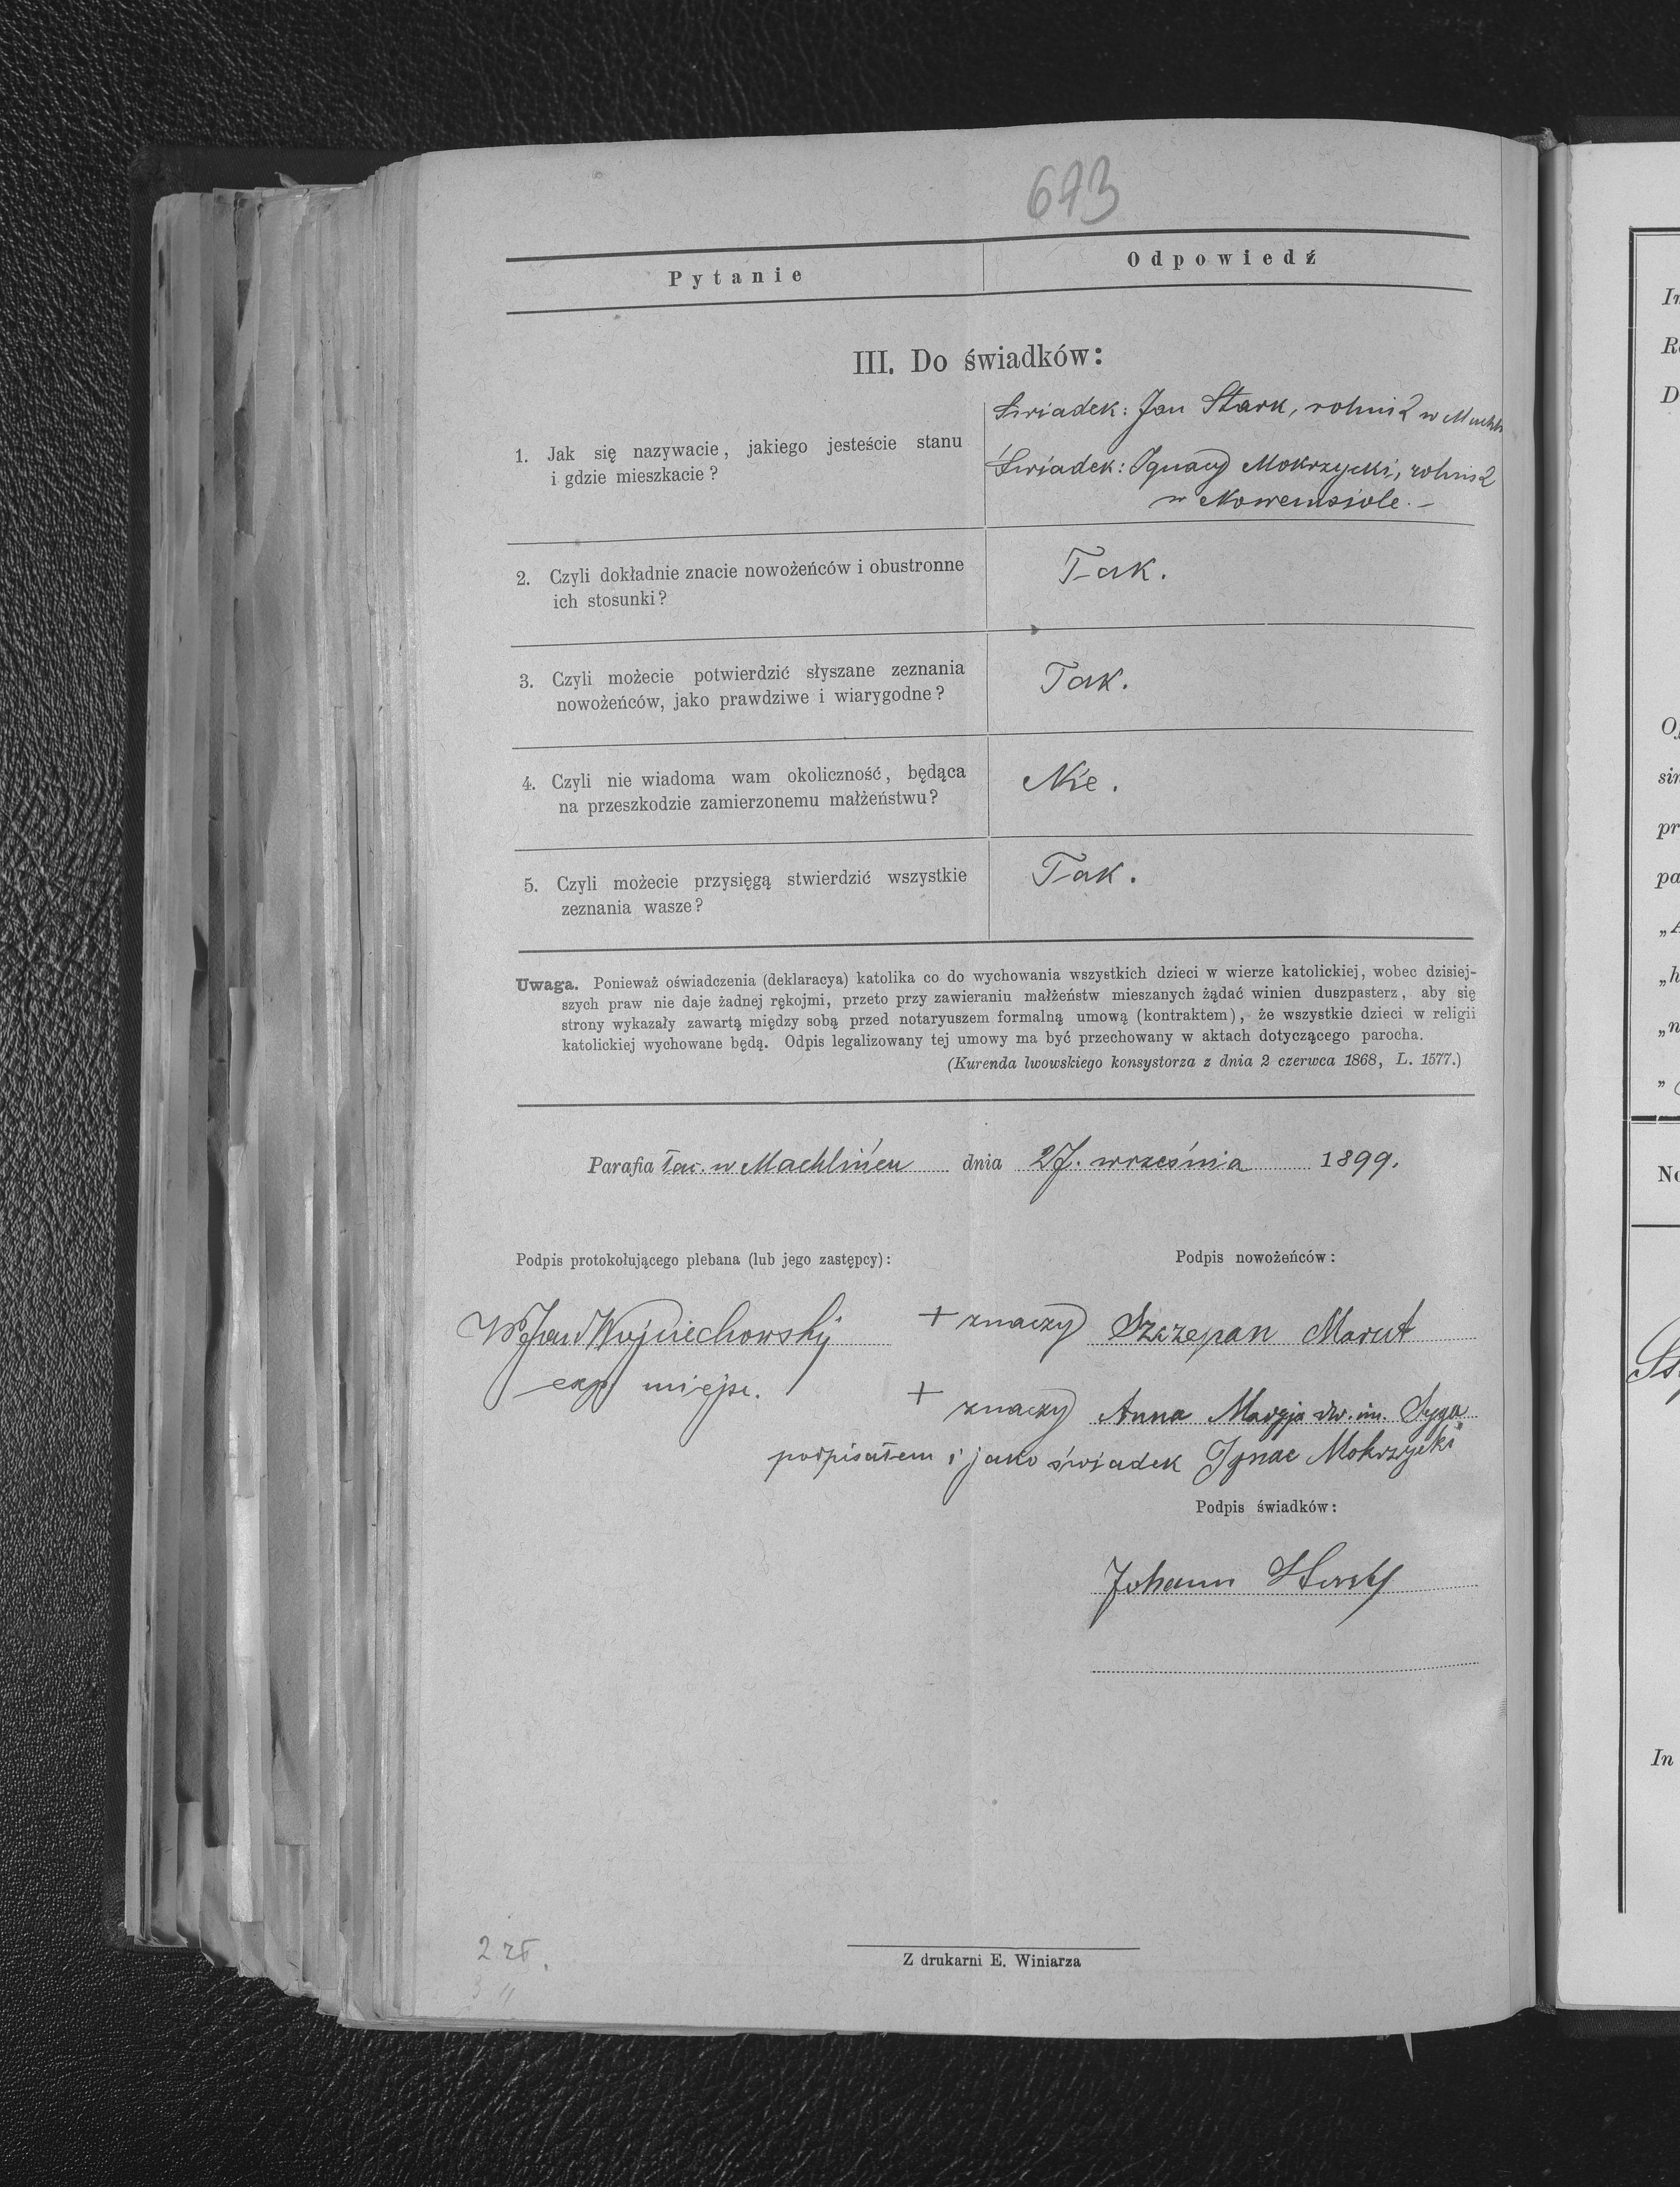 673
Pytanie
Odpowiedź
III. Do świadków:
1. Jak się nazywacie, jakiego jesteście stanu
i gdzie mieszkacie?
Świadek: Jan Stark, rolnik w Machl
Świadek: Ignacy Mokrzycki, rolnik
w Nowemsiole. —
2. Czyli dokładnie znacie nowożeńców i obustronne
ich stosunki?
Tak.
3. Czyli możecie potwierdzić słyszane zeznania
nowożeńców, jako prawdziwe i wiarygodne?
Tak.
4. Czyli nie wiadoma wam okoliczność, będąca
na przeszkodzie zamierzonemu małżeństwu?
Nie.
5. Czyli możecie przysięgą stwierdzić wszystkie
zeznania wasze?
Tak.
Uwaga. Ponieważ oświadczenia (deklaracya) katolika co do wychowania wszystkich dzieci w wierze katolickiej, wobec dzisiej-
szych praw nie daje żadnej rękojmi, przeto przy zawieraniu małżeństw mieszanych żądać winien duszpasterz, aby się
strony wykazały zawartą między sobą przed notaryuszem formalną umową (kontraktem), że wszystkie dzieci w religii
katolickiej wychowane będą. Odpis legalizowany tej umowy ma być przechowany w aktach dotyczącego parocha.
(Kurenda lwowskiego konsystorza z dnia 2 czerwca 1868, L. 1577.)
Parafia łac. w Machlińcu dnia 27. września 1899.
Podpis protokołującego plebana (lub jego zastępcy):
Podpis nowożeńców:
Jan Wojciechowski
exp. miejsc.
+ znaczy Szczepan Marut
+ znaczy Anna Maryja dw. im. Syga
podpisałem i jako świadek Ignac Mokrzycki
Podpis świadków:
Johann Stark
2 zł.
3 "
Z drukarni E. Winiarza
In
D
O
sin
pr
pa
„h
„n
No
In